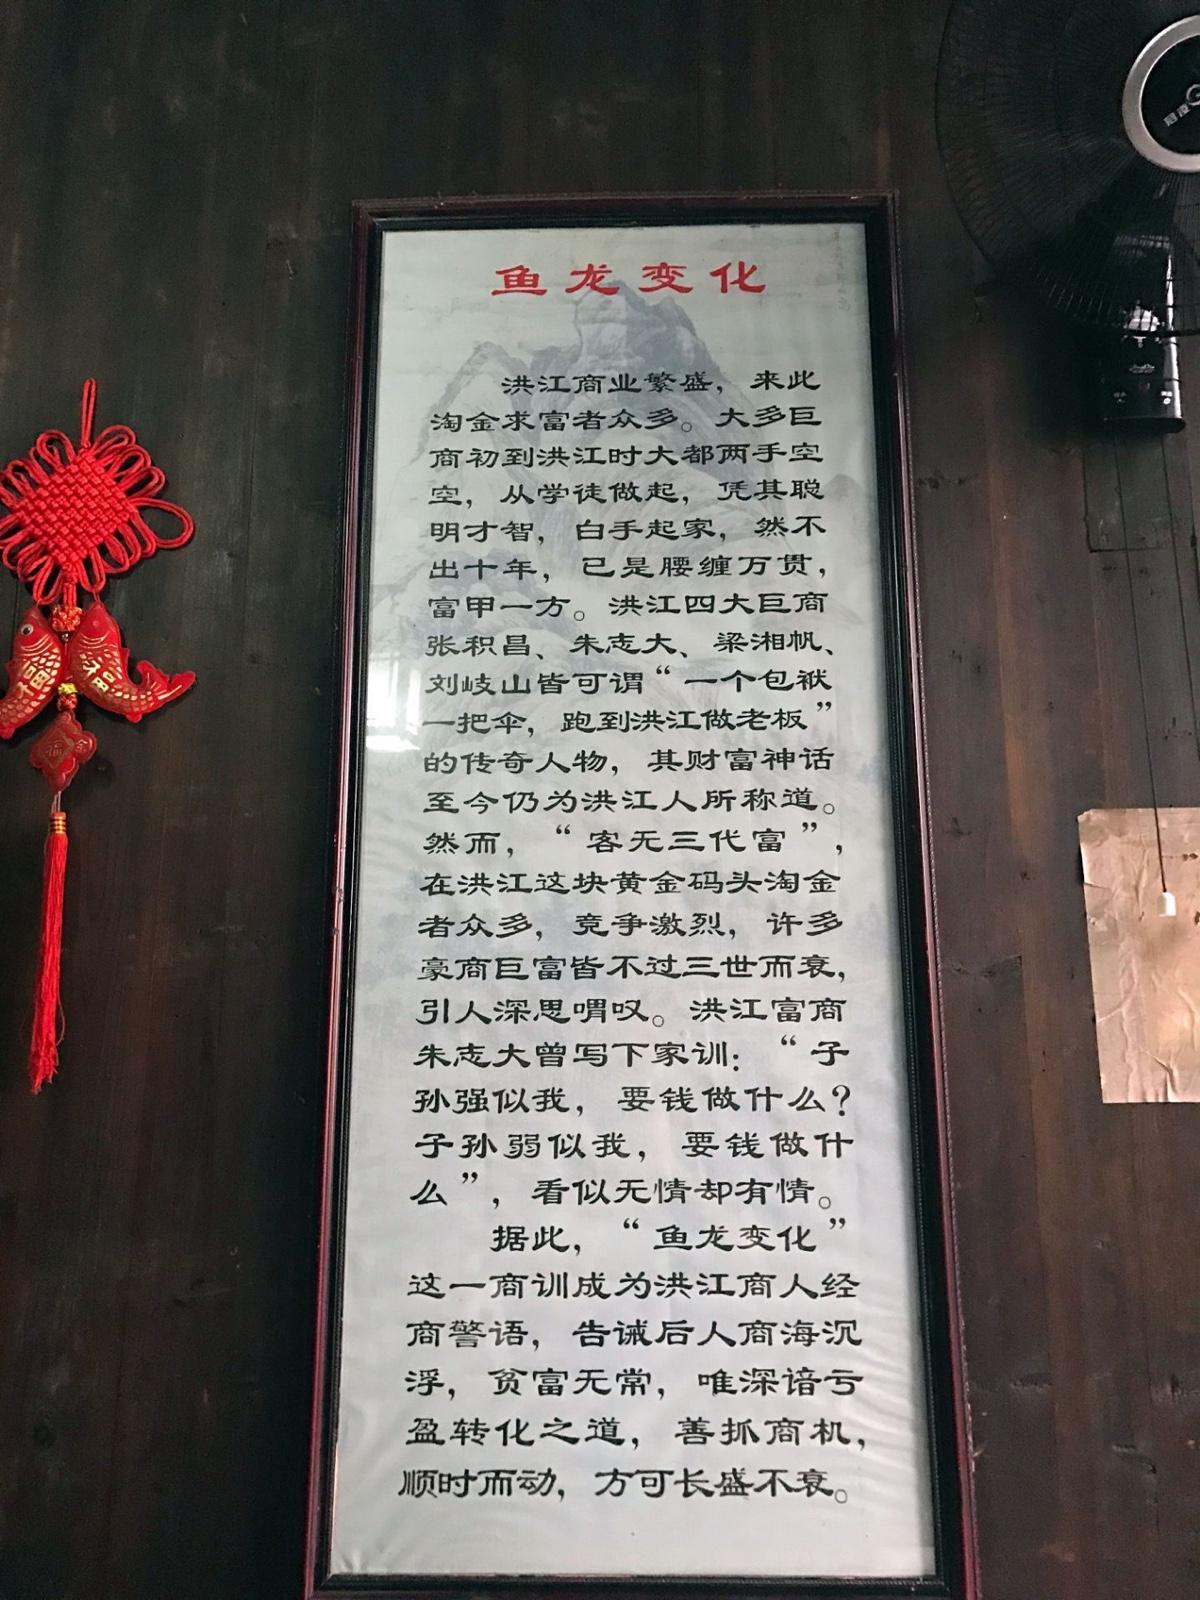 鱼龙变化
洪江商业繁盛，来此
淘金求富者众多。大多巨
商初到洪江时大都两手空
空，从学徒做起，凭其聪
明才智，白手起家，然不
出十年，已是腰缠万贯，
富甲一方。洪江四大巨商
张积昌、朱志大、梁湘帆、
刘岐山皆可谓“一个包袱
一把伞，跑到洪江做老板”
的传奇人物，其财富神话
至今仍为洪江人所称道。
然而，“客无三代富”，
在洪江这块黄金码头淘金
者众多，竞争激烈，许多
豪商巨富皆不过三世而衰，
引人深思喟叹。洪江富商
朱志大曾写下家训：“子
孙强似我，要钱做什么？
子孙弱似我，要钱做什
么”，看似无情却有情。
据此，“鱼龙变化”
这一商训成为洪江商人经
商警语，告诫后人商海沉
浮，贫富无常，唯深谙亏
盈转化之道，善抓商机，
顺时而动，方可长盛不衰。
福
福